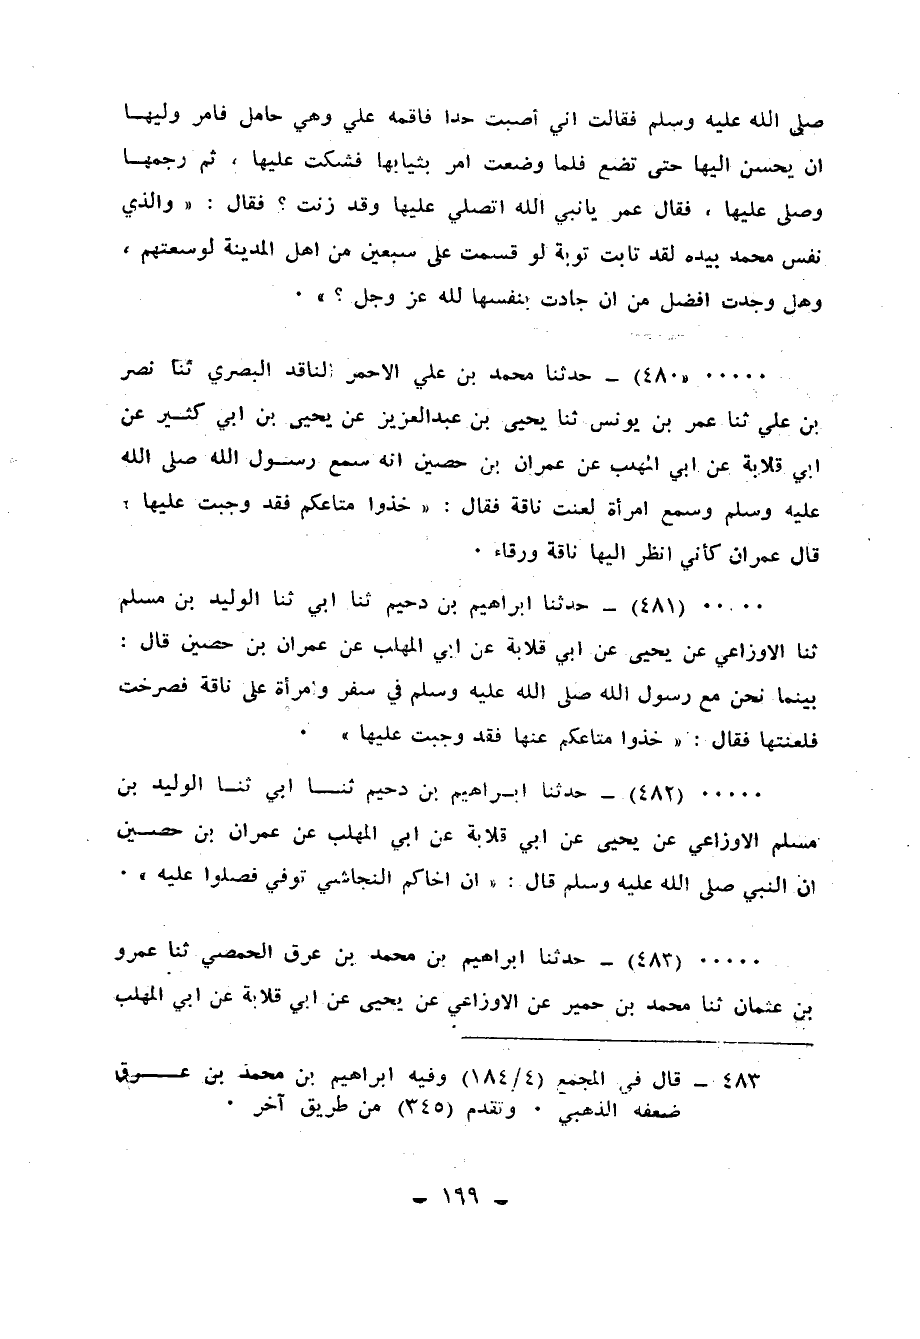 صلى الله عليه وسلم فقالت اني أصبت حدا فاقمه علي وهي حامل فامر وليهـا
ان يحسن اليها حتى تضع فلما وضعت امر بثيابها فشكت عليها ، ثم رجمهـا
وصلى عليها ، فقال عمر يانبي الله اتصلي عليها وقد زنت ؟ فقال : « والذي
نفس محمد بيده لقد تابت توبة لو قسمت على سبعين من اهل المدينة لوسعتهم ،
وهل وجدت افضل من ان جادت بنفسها لله عز وجل ؟ » ٠
٠٠٠٠٠ «٤٨٠) ــ حدثنا محمد بن علي الاحمر الناقد البصري ثنا نصر
بن علي ثنا عمر بن يونس ثنا يحيى بن عبدالعزيز عن يحيى بن ابي كثـير عن
ابي قلابة عن ابي المهلب عن عمران بن حصين انه سمع رسـول الله صلى الله
عليه وسلم وسمع امرأة لعنت ناقة فقال : « خذوا متاعكم فقد وجبت عليها ،
قال عمران كأني انظر اليها ناقة ورقاء ٠
٠٠٠٠٠ (٤٨١) ــ حدثنا ابراهيم بن دحيم ثنا ابي ثنا الوليد بن مسلم
ثنا الاوزاعي عن يحيى عن ابي قلابة عن ابي المهلب عن عمران بن حصين قال :
بينما نحن مع رسول الله صلى الله عليه وسلم في سفر وامرأة على ناقة فصرخت
فلعنتها فقال : « خذوا متاعكم عنها فقد وجبت عليها » ٠
٠٠٠٠٠ (٤٨٢) ــ حدثنا ابـراهيم بن دحيم ثنـــا ابي ثنـا الوليد بن
مسلم الاوزاعي عن يحيى عن ابي قلابة عن ابي المهلب عن عمران بن حصـين
ان النبي صلى الله عليه وسلم قال : « ان اخاكم النجاشي توفي فصلوا عليه » ٠
٠٠٠٠٠ (٤٨٣) ــ حدثنا ابراهيم بن محمد بن عرق الحمصي ثنا عمرو
بن عثمان ثنا محمد بن حمير عن الاوزاعي عن يحيى عن ابي قلابة عن ابي المهلب
٤٨٣ ــ قال في المجمع (١٨٤/٤) وفيه ابراهيم بن محمد بن عـــرق
ضعفه الذهبي ٠ وتقدم (٣٤٥) من طريق آخر ٠
ــ ١٩٩ ــ